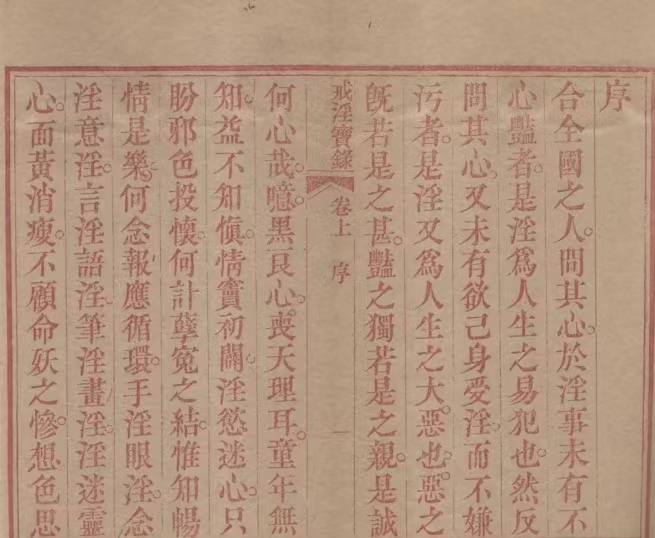 序
合全國之人問其心於淫事未有不
心豔者是淫為人生之易犯也然反
問其心又未有欲己身受淫而不嫌
污者是淫又為人生之大惡也惡之
既若是之甚豔之獨若是之親是誠
戒淫寶錄 卷上 序 一
何心哉噫黑良心喪天理耳童年無
知益不知愼情竇初開淫慾迷心只
盼邪色投懷何計孽寃之結惟知暢
情是樂何念報應循環手淫眼淫念
淫意淫言淫語淫筆淫畫淫淫迷靈
心面黃消瘦不顧命妖之慘想色思